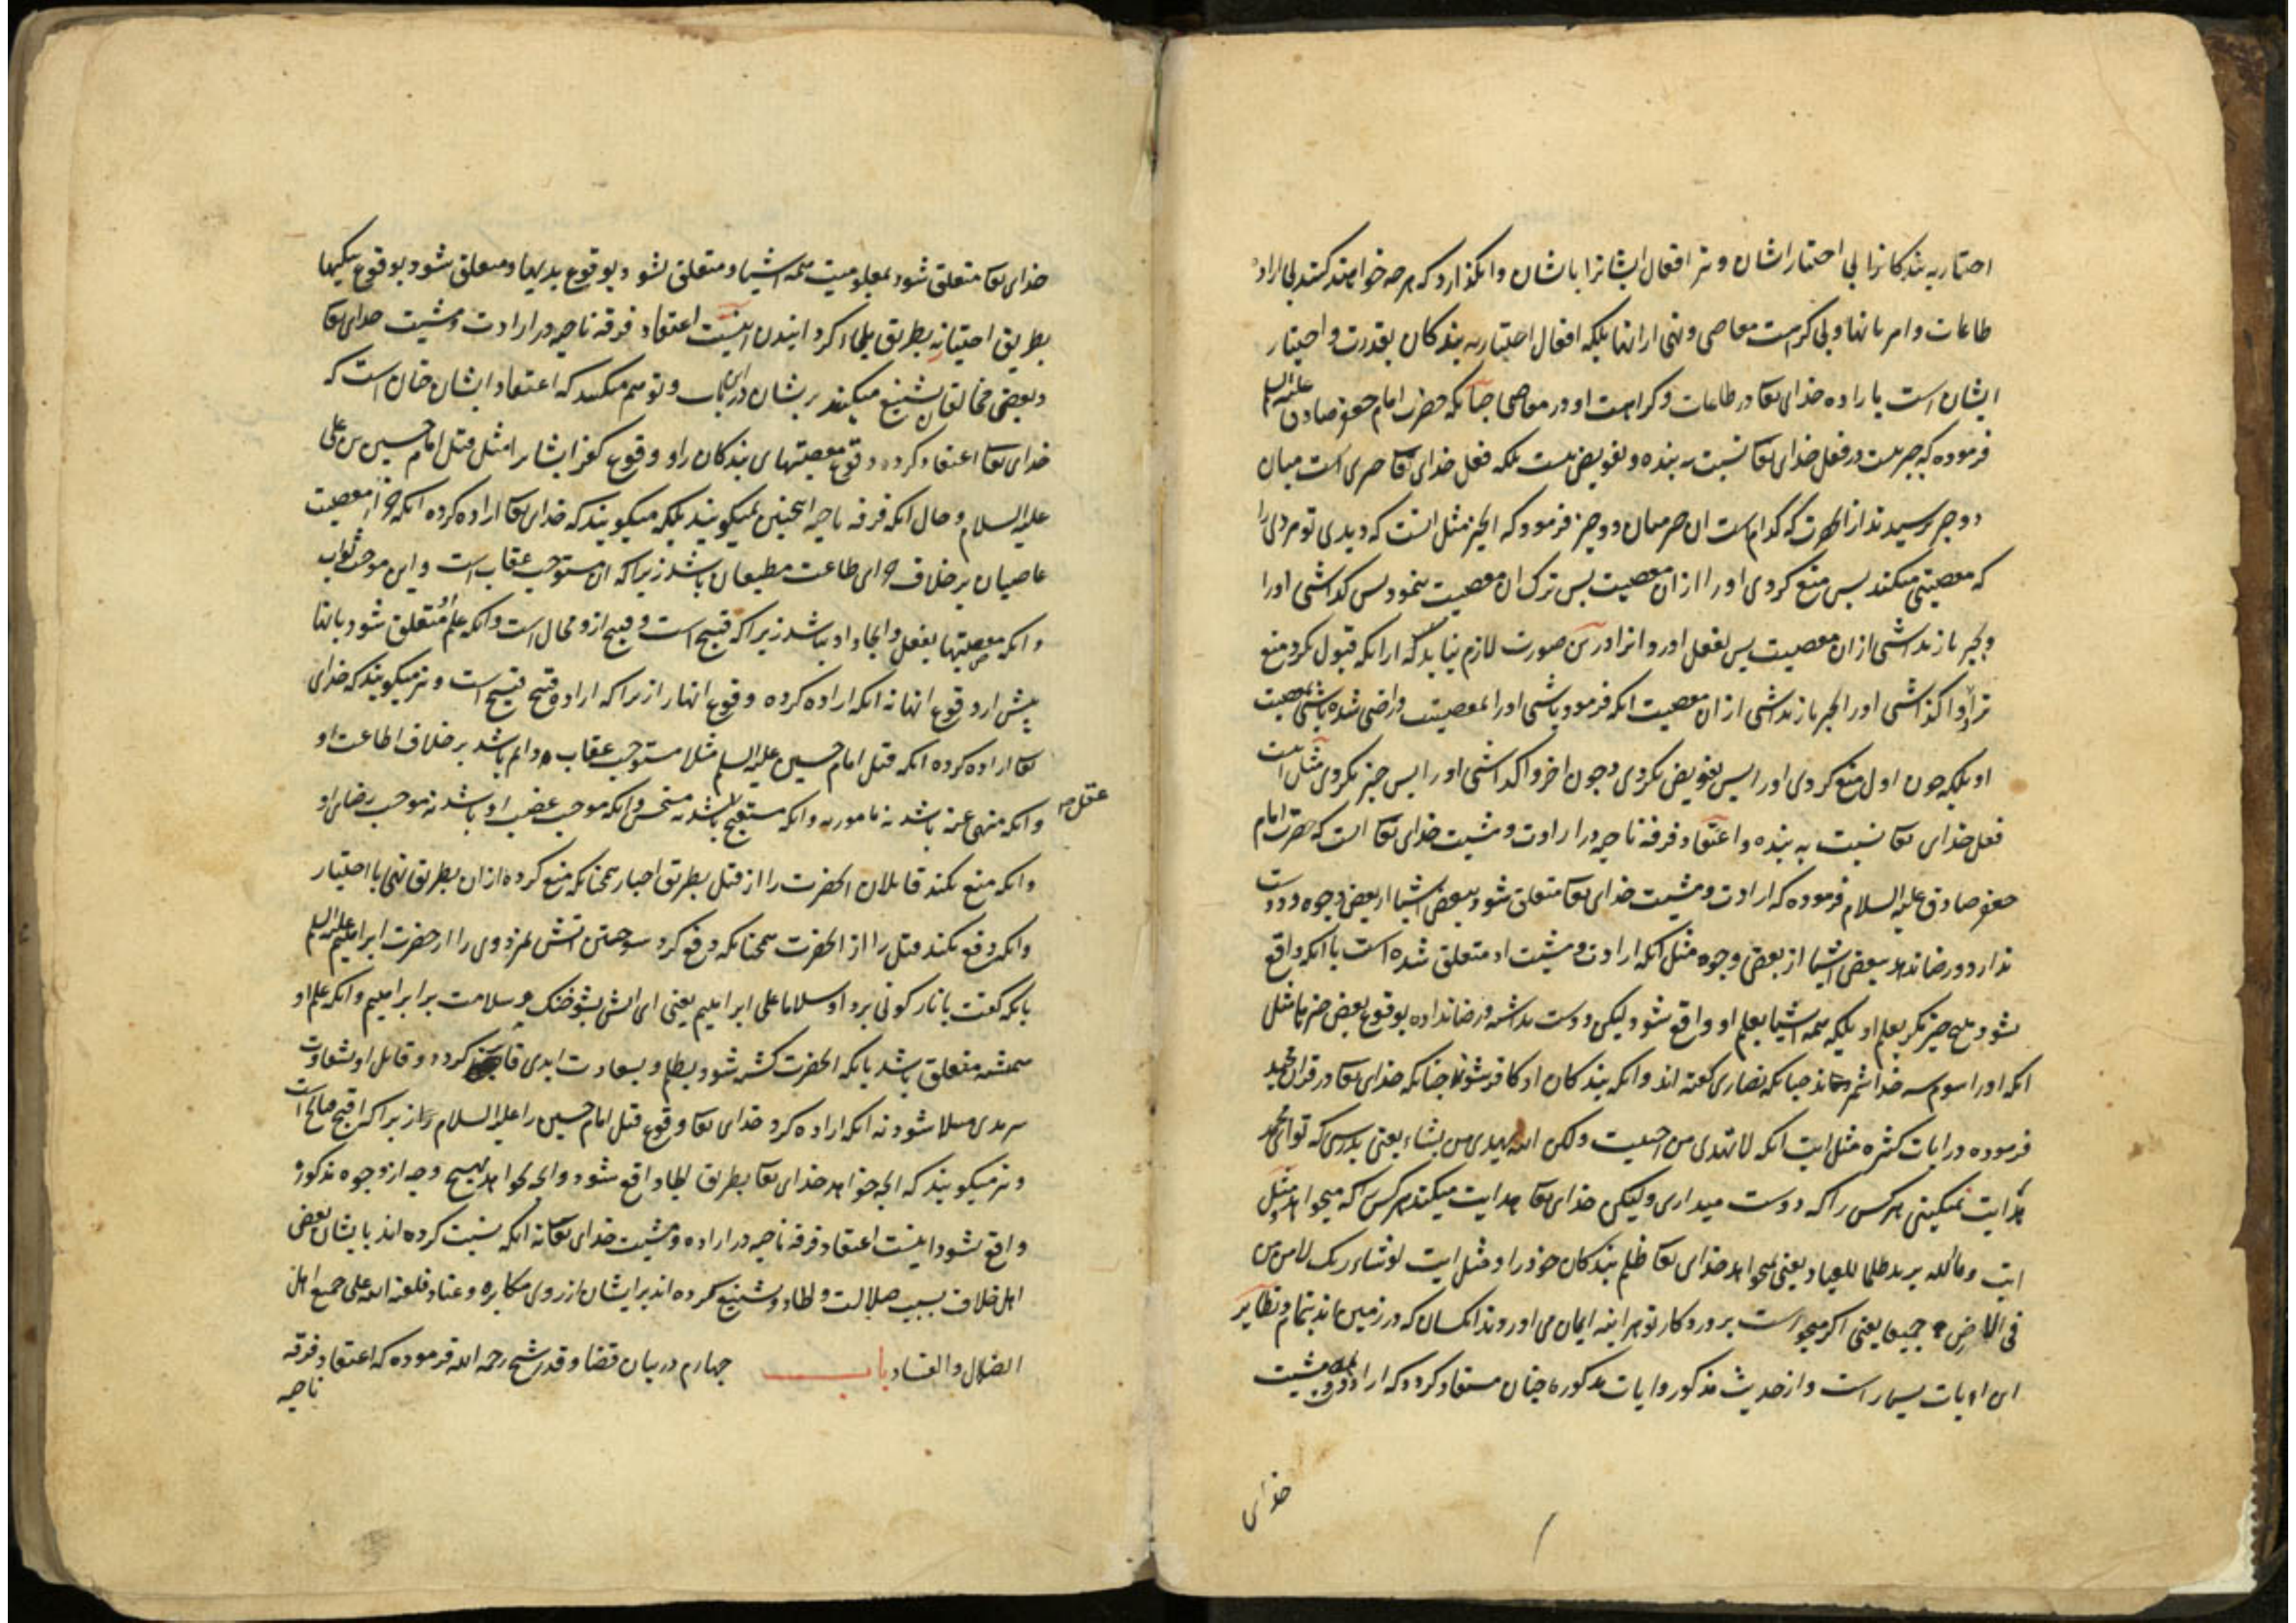 اختیاریه بندکانرا بی اختیار ایشان و نیز افعال ایشانرا با ایشان وانکذارد که هر چه خواهند کنند بی اراده
طاعات و امر بانها و بی کراهت معاصی و نهی از انها بلکه افعال اختیاریه بندکان بقدرت و اختیار
ایشان است با اراده خدای تعا در طاعات و کراهت او در معاصی چنانکه حضرت امام جعفر صادق علیه السلم
فرموده که جبر نیست در فعل خدای تعا نسبت به بنده و تفویض نیست بلکه فعل خدای تعا چیزی است میان
دو چیز پرسیدند از انحضرت که کدام است ان چیز میان دو چیز فرمود که این چیز مثل انست که دیدی تو مردی را
که معصیتی میکند پس منع کردی او را از ان معصیت پس ترک ان معصیت ننمود پس کذاشتی اورا
و بجبر باز نداشتی از ان معصیت پس بفعل اورد انرا در این صورت لازم نیاید که از انکه قبول نکرد منع
ترا و واکذاشتی اورا بجبر باز نداشتی از ان معصیت انکه فرموده باشی اورا بمعصیت و راضی شده باشی بمعصیت
او بلکه چون اول منع کردی اورا پس تفویض نکردی و چون اخر واکذاشتی اورا پس جبر نکردی مثال است
فعل خدای تعا نسبت به بنده و اعتقاد فرقه ناجیه در ارادت و مشیت خدای تعا انست که حضرت امام
جعفر صادق علیه السلام فرموده که ارادت و مشیت خدای تعا متعلق شود ببعض اشیا از بعض وجوه و دوست
ندارد و رضا ندهد ببعض اشیا از بعض وجوه مثل انکه ارادت و مشیت او متعلق شده است با انکه واقع
نشود هیچ چیز مکر بعلم او بلکه همه اشیا بعلم او واقع شود لیکن دوست نداشته و رضا نداده بوقوع بعض چیزها مثل
انکه اورا سوم سه خدا شمرده‌اند چنانکه نصاری کفته اند و انکه بندکان او کافر شوند چنانکه خدای تعا در قران مجید
فرموده در ایات کثیره مثل ایت انکه لا تهدی من احببت و لکن الله یهدی من یشاء یعنی بدرستی که تو ای محمد
هدایت نمیکنی هر کس را که دوست میداری و لیکن خدای تعا هدایت میکند هر کس را که میخواهد و مثل
ایت و ما الله یرید ظلما للعباد یعنی نمیخواهد خدای تعا ظلم بندکان خود را و مثل ایت لو شاء ربک لامن من
فی الارض جمیعا یعنی اکر میخواست پروردکار تو هر اینه ایمان می اوردند انکسان که در زمین اند بتمام و نظایر
این ایات بسیار است و از حدیث مذکور و ایات مذکوره چنان مستفاد کردد که ارادت و مشیت
خدای
خدای تعا متعلق شود بمعلومیت همه اشیا و متعلق نشود بوقوع بدیها و متعلق شود بوقوع نیکیها
بطریق اختیار نه بطریق ملجاء کردانیدن اینست اعتقاد فرقه ناجیه در ارادت و مشیت خدای تعا
و بعضی مخالفان تشنیع میکنند بر ایشان در این باب و توهم میکنند که اعتقاد ایشان چنان است که
خدای تعا اعتقاد کرده وقوع معصیتهای بندکان را و وقوع کفر ایشانرا مثل قتل امام حسین بن علی
علیه السلام و حال انکه فرقه ناجیه اینچنین نمیکویند بلکه میکویند که خدای تعا اراده کرده انکه جزای معصیت
عاصیان بر خلاف جزای طاعت مطیعان باشد زیرا که ان مستوجب عقاب است و این موجب ثواب
و انکه معصیتها بفعل و ایجاد او نباشد زیرا که قبیح است و قبیح از و محال است و انکه علم او متعلق شود بانها
پیش از وقوع انها نه انکه اراده کرده وقوع انها را زیرا که اراده قبیح قبیح است و نیز میکویند که خدای
تعا اراده کرده انکه قتل امام حسین علیه السلم مثلا مستوجب عقاب دایم باشد بر خلاف اطاعت او
و انکه منهی عنه باشد نه مامور به و انکه مستقبح باشد نه مستحسن و انکه موجب غضب او باشد نه موجب رضای او
عقل
و انکه منع نکند قاتلان انحضرت را از قتل بطریق اجبار همچنانکه منع کرده از ان بطریق نهی با اختیار
و انکه دفع نکند قتل را از انحضرت همچنانکه دفع کرد سوختن اتش نمرودی را از حضرت ابراهیم علیه السلم
بانکه کفت یا نار کونی بردا و سلاما علی ابراهیم یعنی ای اتش بشو خنک و سلامت بر ابراهیم و انکه علم او
همیشه متعلق باشد بانکه انحضرت کشته شود بظلم و بسعادت ابدی کردد و قاتل او بشقاوت
سرمدی مبتلا شود نه انکه اراده کرد خدای تعا وقوع قتل امام حسین را علیه السلام زیرا که اقبح قبایح است
و نیز میکویند که انچه خواهد خدای تعا بطریق الجاء واقع شود و انچه نخواهد بهیچ وجه از وجوه مذکوره
واقع نشود اینست اعتقاد فرقه ناجیه در اراده و مشیت خدای تعا نه انکه نسبت کرده اند بایشان بعض
اهل خلاف بسبب ضلالت و و تشنیع کرده اند بر ایشان از روی مکابره و عناد فلعنة الله علی جمیع اهل
الضلال و الفساد باب چهارم در بیان قضا و قدر شیخ رحمه الله فرموده که اعتقاد فرقه
ناجیه